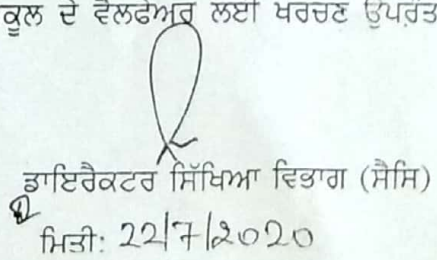 ਕੂਲ ਦੇ ਵੈਲਫੇਅਰ ਲਈ ਖਰਚਣ ਉਪਰੰਤ
ਡਾਇਰੈਕਟਰ ਸਿੱਖਿਆ ਵਿਭਾਗ (ਸੈਸਿ)
ਮਿਤੀ: 22/7/2020